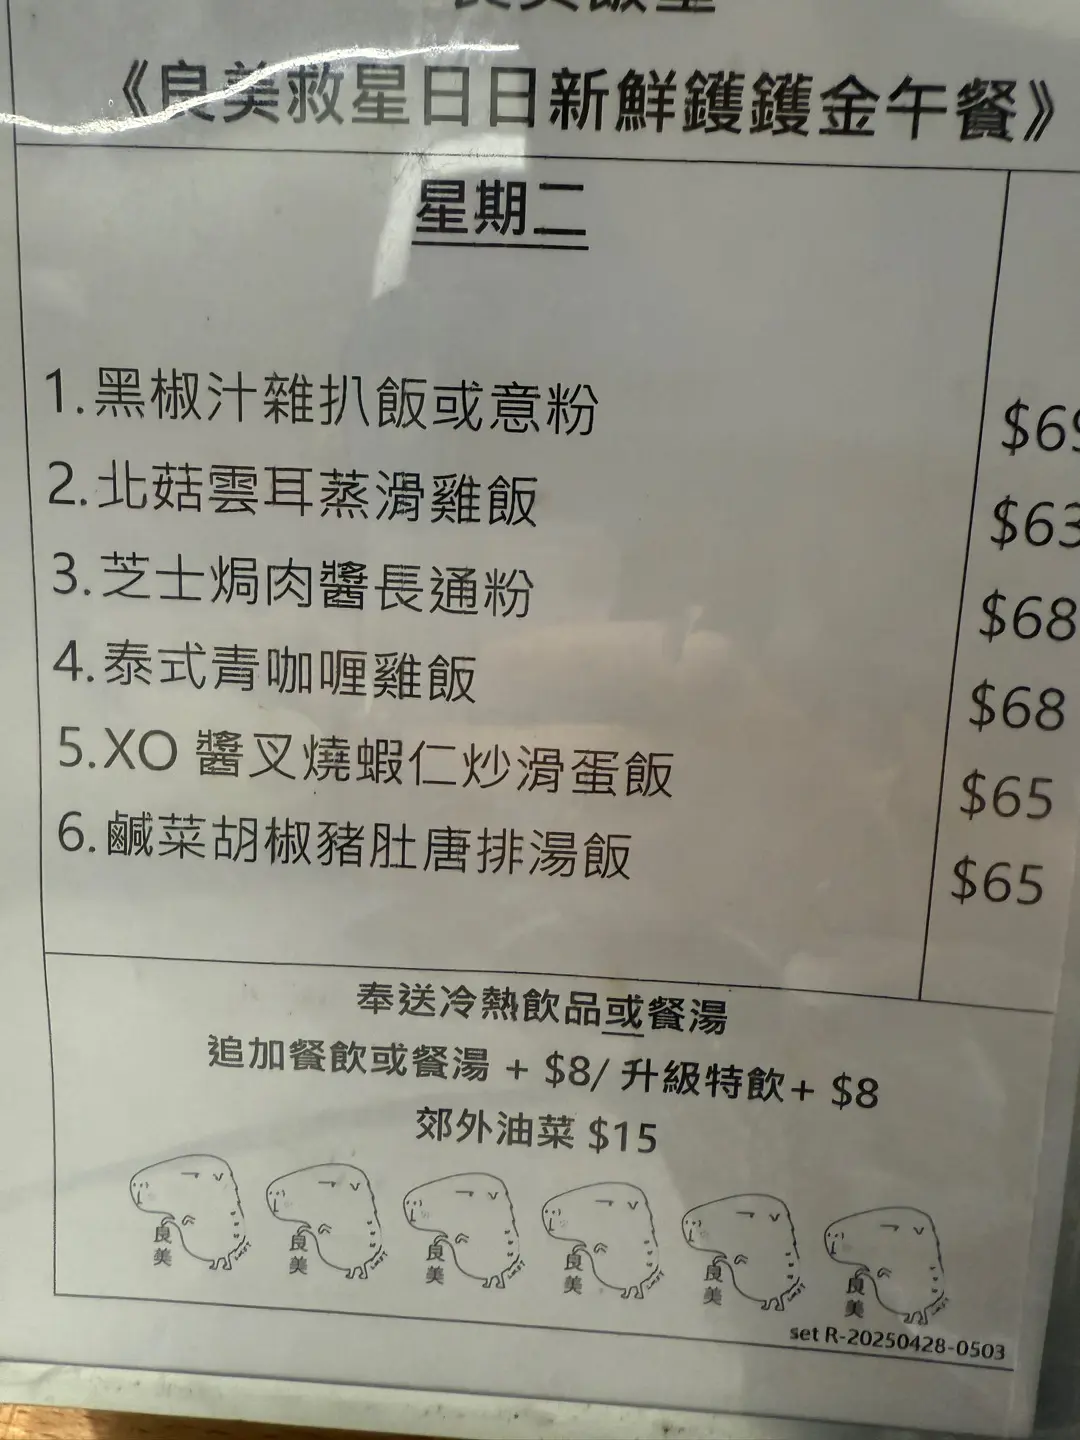 《良美救星日日新鮮鑊鑊金午餐》
星期二
1.黑椒汁雜扒飯或意粉 $69
2.北菇雲耳蒸滑雞飯 $63
3.芝士焗肉醬長通粉 $68
4.泰式青咖喱雞飯 $68
5.XO 醬叉燒蝦仁炒滑蛋飯 $65
6.鹹菜胡椒豬肚唐排湯飯 $65
奉送冷熱飲品或餐湯
追加餐飲或餐湯 + $8/ 升級特飲+ $8
郊外油菜 $15
良美 良美 良美 良美 良美 良美
set R-20250428-0503